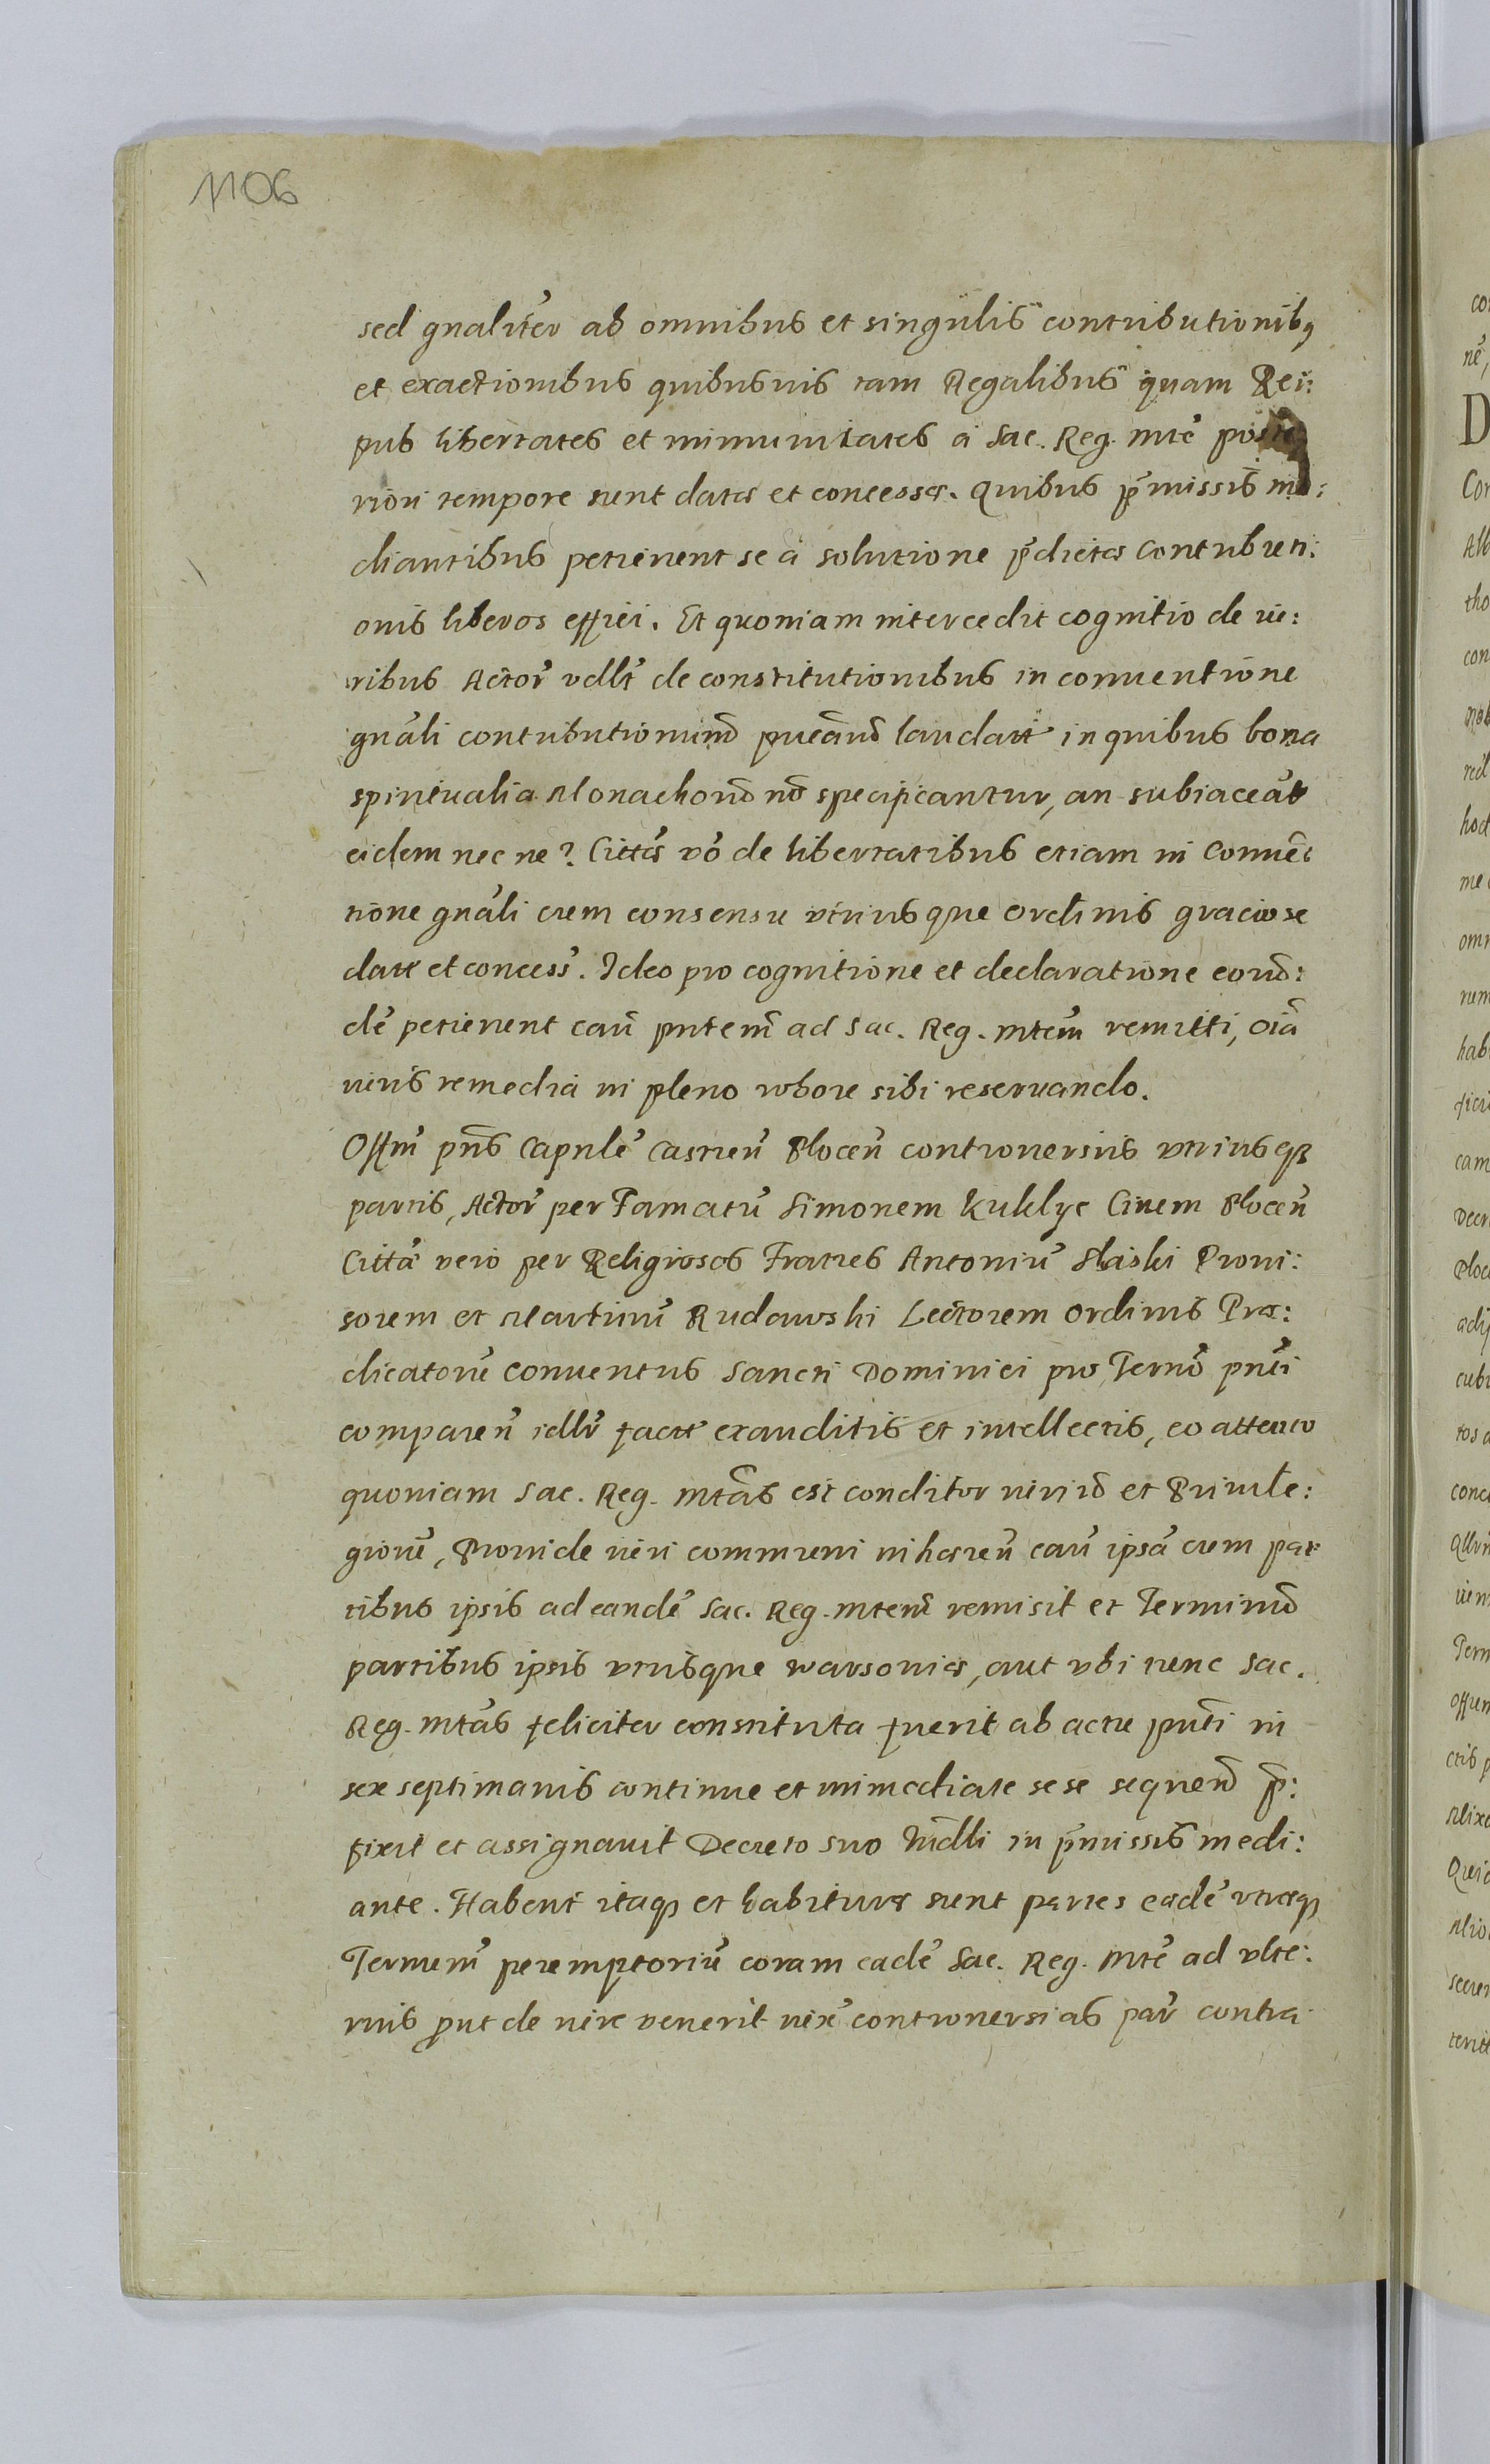 1106
sed gnaliter ab omnibus et singulis contributionibq
et exactionibus quibusuis tam Regalibus quam Rei:
pub libertates et immunitates a Sac. Reg. mte poste
riori tempore sunt datæ et concessæ. Quibus p̄missis me:
diantibus petierunt se a solutione p̄dictæ Contributi:
onis liberos effici. Et quoniam intercedit cognitio de iu:
ribus Actor̃ vdlt de constitutionibus in conuentione
gnāli contributionum̃ laudatæ in quibus bona
spiritualia Monachorũ nō specificantur, an subiaceāt
eidem nec ne? Cittæ vō de libertatibus etiam in Conuen
tione gnāli cum consensu vtriusque ordinis graciose
datæ et concess̃. Ideo pro cognitione et declaratione eorũ:
dē petierunt caũ pntem̃ ad Sac. Reg. mtem̃ remitti, oiā
iuris remedia in pleno robore sibi reseruando.
Offm̃ pñs Capnle Castreñ Ploceñ controuersiis vtriusqȝ
partis, Actor̃ per Famatũ Simonem Kuklyc Ciuem Ploceñ
Cittā vero per Religiosos Fratres Antoniũ Slaski Proui:
sorem et Martinũ Rudawski Lectorem ordinis Præ:
dicatorũ Conuentus Sancti Dominici pro Termō pnti
compareñ idlr̃ factæ exauditis et intellectis, eo attento
quoniam Sac. Reg. Mtās est conditor iurium̃ et Priuile:
giorũ, Proinde iuri communi inhæreñ caũ ipsā cum par
tibus ipsis ad eandē Sac. Reg. Mtem̃ remisit et Terminũ
partibus ipsis vtrisque warsouiæ, aut vbi tunc Sac.
Reg. Mtās feliciter constituta fuerit ab actu pnti in
sex septimanis continue et immediate sese sequeñ p̄:
fixit et assignauit Decreto suo in p̄missis medi:
ante. Habent itaqȝ et habituræ sunt partes eædē vtræqȝ
Terminũ peremptoriũ coram eadē Sac. Reg. Mte ad vlte:
rius p̱ut de iure venerit iuxē controuersias par̃ contra